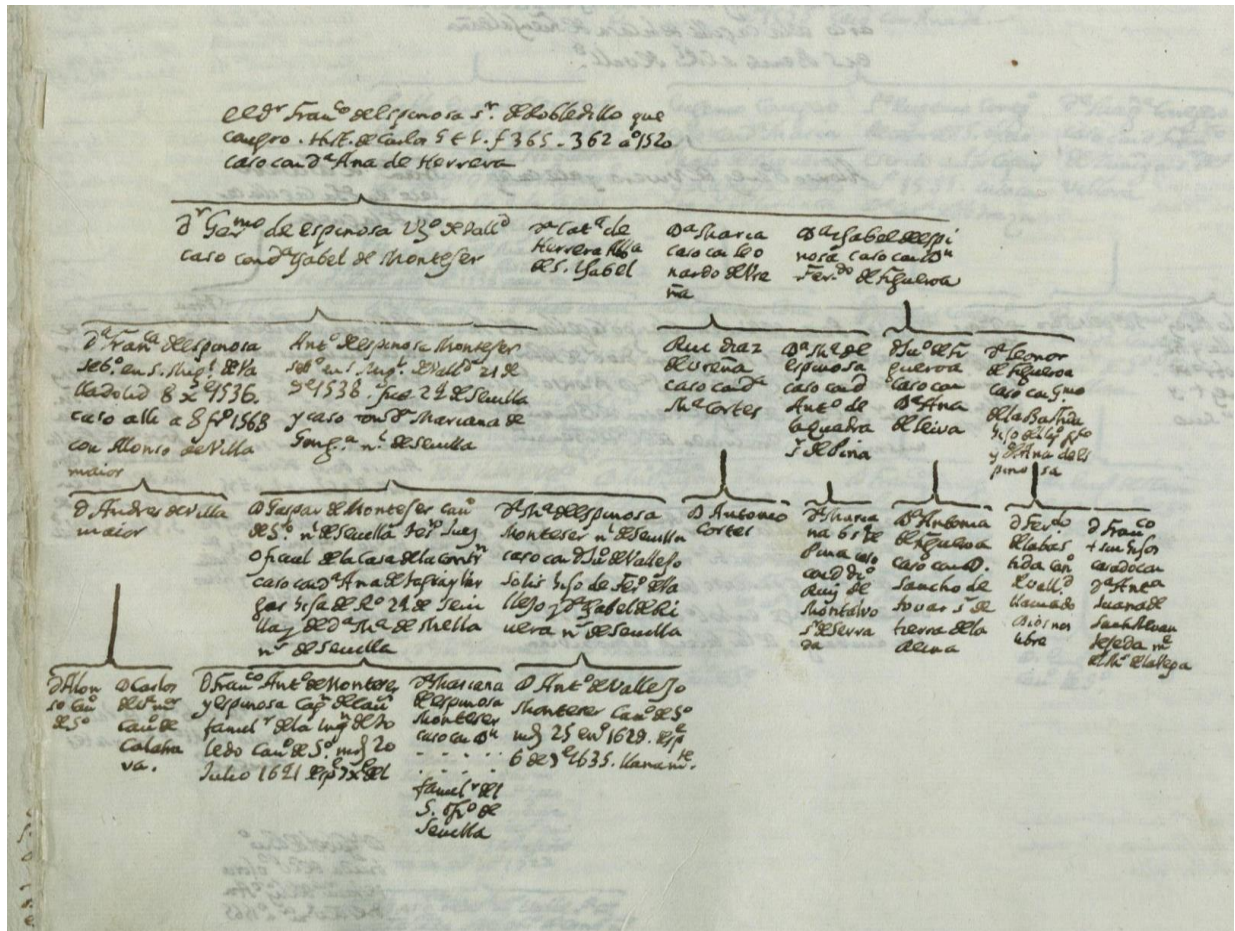 el dr Franco de espinosa sr. de Robledillo que
compro. Hist. de Carlos 5 t 1. f 365 - 362 aº 1520
caso con dª Ana de Herrera
dr Germo de espinosa de Valld
caso con dª Ysabel de Monteser
dª Catª de
Herrera
de S. Ysabel
dª Maria
caso con leo
nardo de Vre
ña
dª Ysabel de espi
nosa caso con Dn
Fer.do de Figueroa
dª Franca de espinosa
en S. Mig. de Va
lladolid 8 1536.
caso alli a 8 frº 1568
con Alonso de Villa
maior
Antº de espinosa Monteser
en S. Mig. de Valld 21 de
1538. fue de Sevilla
y caso con dª Mariana de
Gong.ª nl. de Sevilla
Rui diaz
de Urena
caso con dª
Mª Cortes
dª Mª de
espinosa
caso con d
Antº de
la quadra
sr de Pina
d Juº de Fi
gueroa
caso con
dª Ana
de leiva
dª leonor
de figueroa
caso con Gmo
de la Bastida
hijo del
y de Ana de es
pinosa
d Andres de Villa
maior
d Gaspar de Monteser cauº
de Sº. nl de Sevilla Juez
oficial de la Casa de la contrn
caso con dª Ana
hija de Rº de Sevi
lla y de dª Mª de Mella
nl de Sevilla
dª Mª de espinosa
Monteser nl de Sevilla
caso con d Juº de Vallejo
Solis hijo de Ferº de Va
llejo y dª Ysabel de Ri
uera nl de Sevilla
d Antonio
Cortes
dª Maria
na de
Pina caso
con d diº
Ruiz de
Montalvo
sr de Serra
da
dª Antonia
de figueroa
caso con d.
Sancho de
tovar sr de
tierra de la
Reina
d Ferdo
de la bas
tida can
de Valld.
llamado
Dios nos
libre
d Franco
+ sin hijos
casado con
dª Ana
Juana de
Santillan
tejeda
de la Vega
d Alon
so cauº
de Sº
d Carlos
cauº de
Calatra
va.
d Franco Antº de Monteser
y espinosa Capn de cau
famil r de la Inqn de to
ledo cauº de Sº. 20
Julio 1621
dª Mariana
de espinosa
Monteser
caso con dn
. . . .
. . . .
famil r del
S. Ofº de
Sevilla
d Antº de Vallejo
Monteser Cauº de Sº
25 enº 1629.
6 de 1635. llanamte.